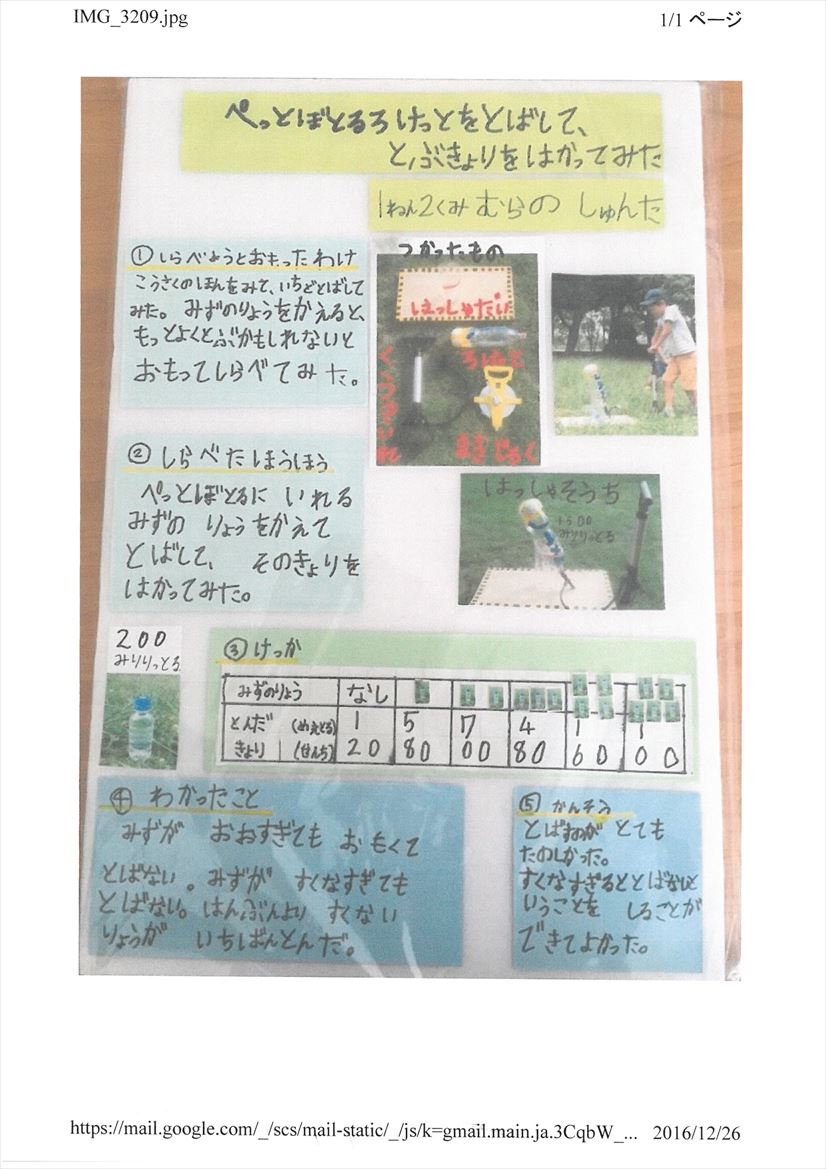 IMG_3209.jpg
1/1 ページ
ぺっとぼとるろけっとをとばして、
とぶきょりをはかってみた
1ねん2くみ むらの しゅんた
① しらべようとおもったわけ
こうさくのほんをみて、いちどとばして
みた。みずのりょうをかえると、
もっとよくとぶかもしれないと
おもってしらべてみた。
つかったもの
はっしゃだい
ろけっと
くうきいれ
まきじゃく
② しらべたほうほう
ぺっとぼとるに いれる
みずの りょうをかえて
とばして、 そのきょりを
はかってみた。
はっしゃそうち
1500
みりりっとる
200
みりりっとる
③ けっか
みずのりょう なし
とんだ (めえとる) 1 5 7 4 1 1
きょり (せんち) 20 80 00 80 60 00
④ わかったこと
みずが おおすぎても おもくて
とばない。みずが すくなすぎても
とばない。はんぶんより すくない
りょうが いちばんとんだ。
⑤ かんそう
とばすのが とても
たのしかった。
すくなすぎるととばないと
いうことを しることが
できてよかった。
https://mail.google.com/_/scs/mail-static/_/js/k=gmail.main.ja.3CqbW_... 2016/12/26